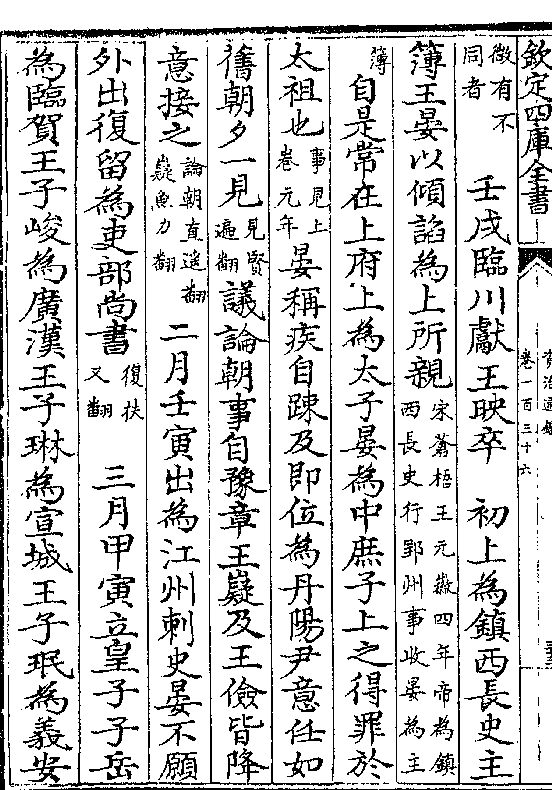 欽定四庫全書
資治通鑑
卷一百三十六
徵有不
同者
壬戌臨川獻王映卒　初上為鎮西長史主
簿王晏以傾諂為上所親
宋蒼梧王元徽四年帝為鎮
西長史行郢州事收晏為主
簿
自是常在上府上為太子晏為中庶子上之得罪於
太祖也
事見上
卷元年
晏稱疾自疎及即位為丹陽尹意任如
舊朝夕一見
見賢
遍翻
議論朝事自豫章王嶷及王儉皆降
意接之
論朝直遙翻
嶷魚力翻
二月壬寅出為江州刺史晏不願
外出復留為吏部尚書
復扶
又翻
三月甲寅立皇子子岳
為臨賀王子峻為廣漢王子琳為宣城王子珉為義安